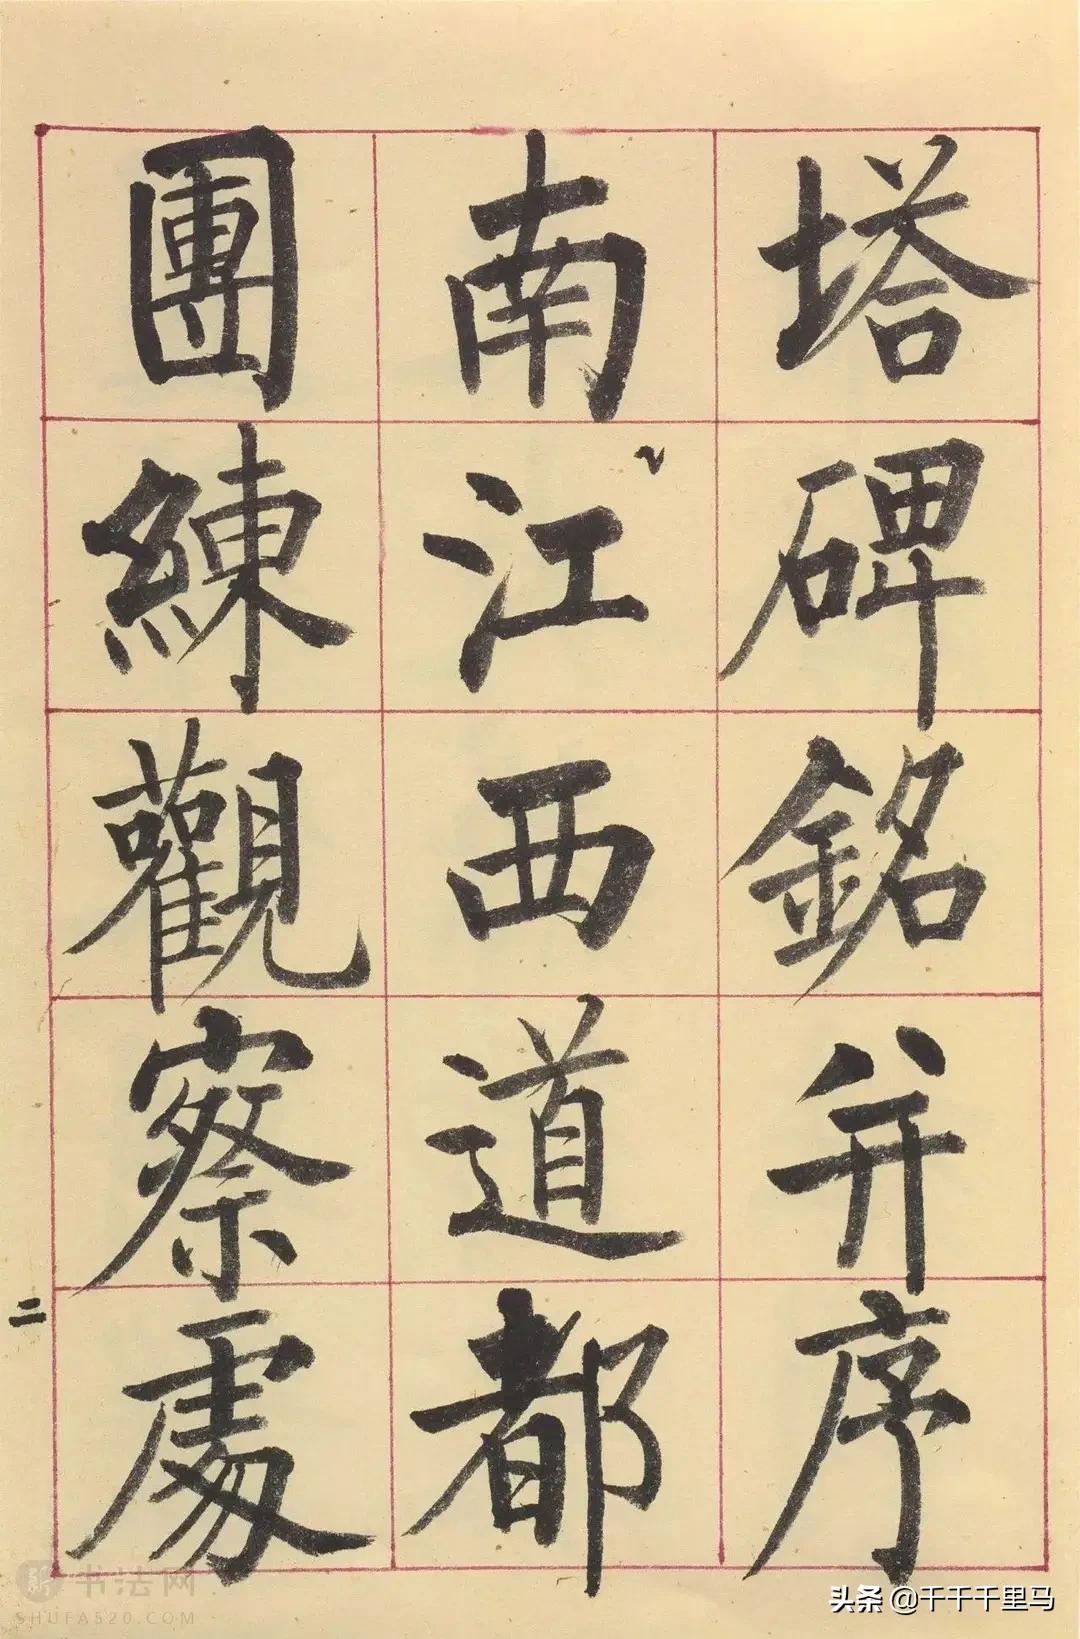 塔碑銘并序
南江西道都
團練觀察處
二
书法网
SHUFA520.COM
头条 @千千千里马